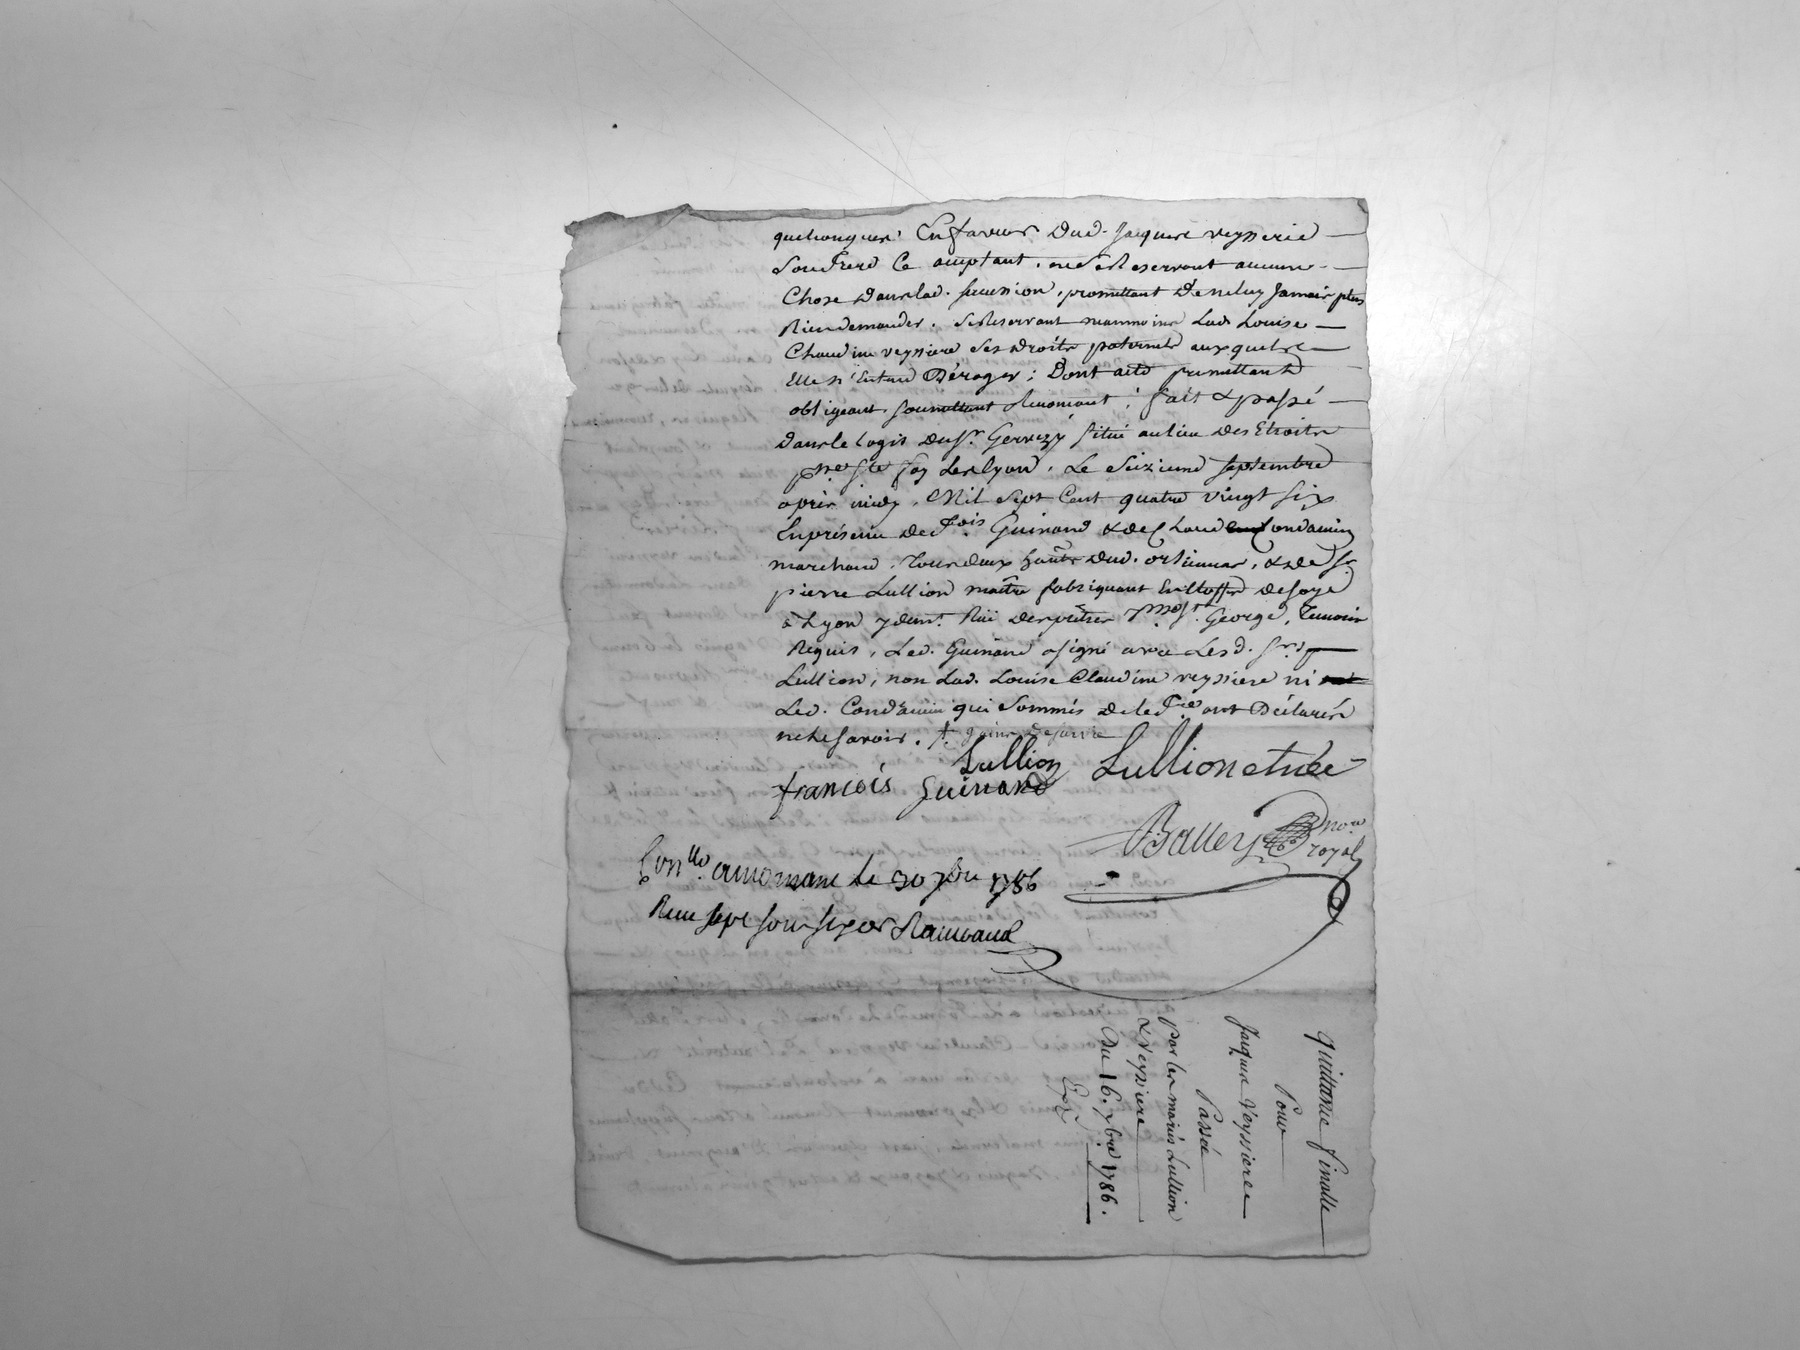 quelconques. En faveur Dud. Jacques veysserie
Son frere Ce acceptant. ne se Reservant aucune
Chose Dans lad. succession, promettant De ne luy Jamais plus
Rien demander. Se Reservant neanmoins Lad. Louise
Claudine veyssiere ses Droits paternels auxquels
Elle n'Entend Déroger; Dont acte promettant
obligeant, soumettant Renoncant; fait & passé
dans le logis du Sr. Gervezy situé au lieu Des Etroits
psse. Ste foy Les lyon. Le Seizieme septembre
après midy, Mil Sept Cent quatre vingt six
En présence De fois. Guinand & de Claude Condamin
marchand. Tous deux hants. Dud. & de Sr.
pierre Lullion maitre fabriquant En Etoffes de soye
à Lyon y demt. Rüe Des prêtres psse. St. George, Temoins
Requis, Led. Guinand a signé avec Les d. Srs.
Lullion, non Lad. Louise Claudine veyssiere ni
Led. Condamin qui Sommés De le fre. ont Déclarés
ne le savoir.
Lullion Lullion
francois Guinand
Balley nore
royal
Conllé. a le 30 7bre 1786
Recu sept sous six Rambaud
quittance finalle
Pour
Jacques Veyssiere
Passée
Par les mariés Lullion
& Veyssiere
Du 16. 7bre 1786.
Expé.